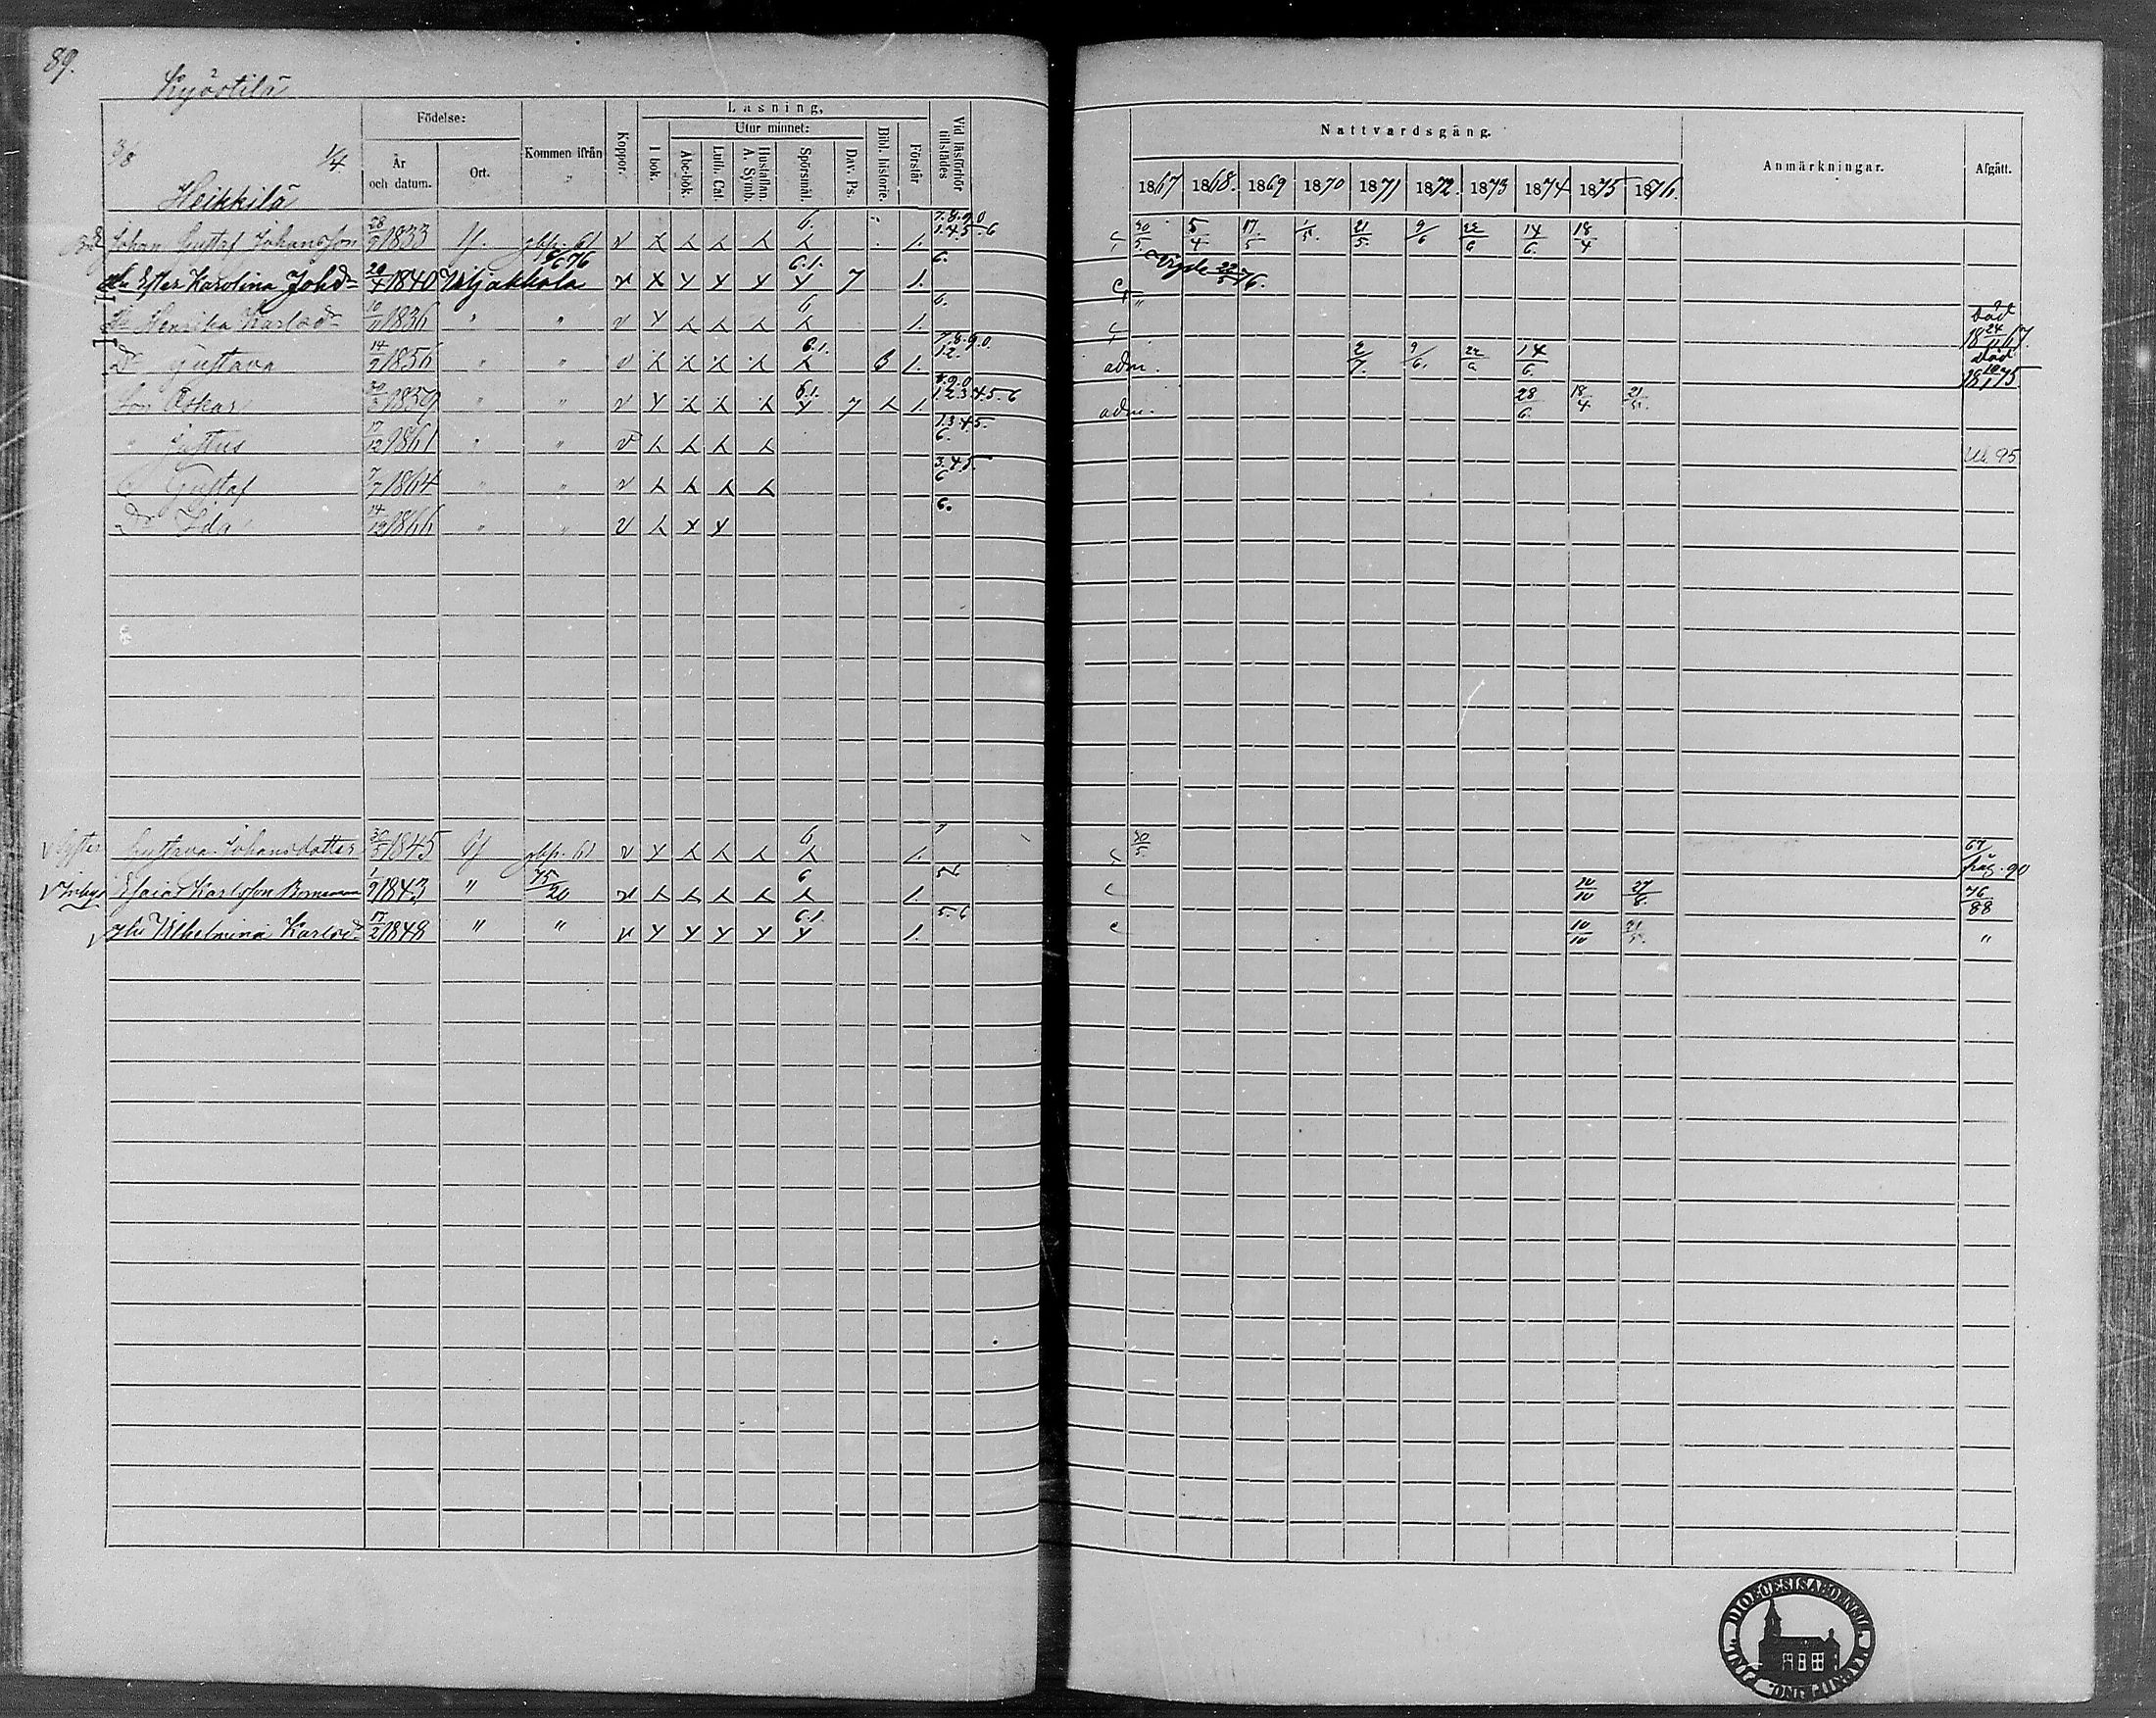 89.
Kyöstilä
Födelse:
Läsning,
Utur minnet:
Kommen ifrån
Koppor.
I bok.
Abc-bok.
Luth. Cat.
Hustaflan. A. Symb.
Spörsmål.
Dav. Ps.
Bibl. historie.
Förstår
Vid läsförhör tillstädes
År och datum.
Ort.
Nattvardsgång.
Anmärkningar.
Afgått.
1867 1868. 1869 1870 1871 1872. 1873 1874 1875 1876.
3/8 1/4
Heikkilä
Johan Gustaf Johansson 28/9 1833 gbp. 61 v 6. 1. 7.8.9.0 1.4.5.6 30/5. 5/4 17/5 1/5. 21/5. 9/6 22/6 14/6. 18/4
Hu Ester Karolina Johd= 20/4 1840 Viljakkala 6/6 76 v 6.1. 7 1. 6. Vigde 22/5 76.
Hu Henrika Karlsd= 1836 " " v 6 1. 6. " Död 18 24/11 67.
Dr Gustava 14/9 1856 " " v 6.1. B 1. 7.8.9.0. 1.2. adm. 2/7. 9/6. 22/6 14/6. Död 18 10/1 75
Son Oskar 1859 " " v 6.1. 7 1. 8.9.0 1.2.3.4.5.6 adm. 28/6. 18/4 21/5.
" Justus 17/12 1861 " " v 1.3.4.5. 6. 95
" Gustaf 7/7 1864 " " v 3.4.5. 6
Dr Ida 14/12 1866 " " v 6.
Gustava Johansdotter 30/5 1845 gbp. 61 v 6 1. 7 30/5. 67 90
v Inhys Esaias Karlsson 1/9 1843 " 75/20 v 6 1. 5. c 10/10 27/6. 76/88
v Hu Vilhelmina Karlsd= 17/2 1848 " " v 6.1. 1. 5.6 c 10/10 21/5. "